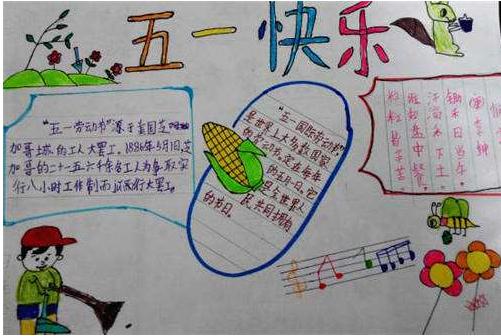 五一快乐
“五一劳动节”源于美国芝
加哥城的工人大罢工。1886年5月1日,芝
加哥的二十一万六千余名工人为争取实
行八小时工作制而举行大罢工。
“五一国际劳动节”
是世界上大多数国家
的劳动节。定在每年
的五月一日。它
是全世界人
民共同拥有
的节日。
(唐)李绅
锄禾日当午
汗滴禾下土
谁知盘中餐
粒粒皆辛苦